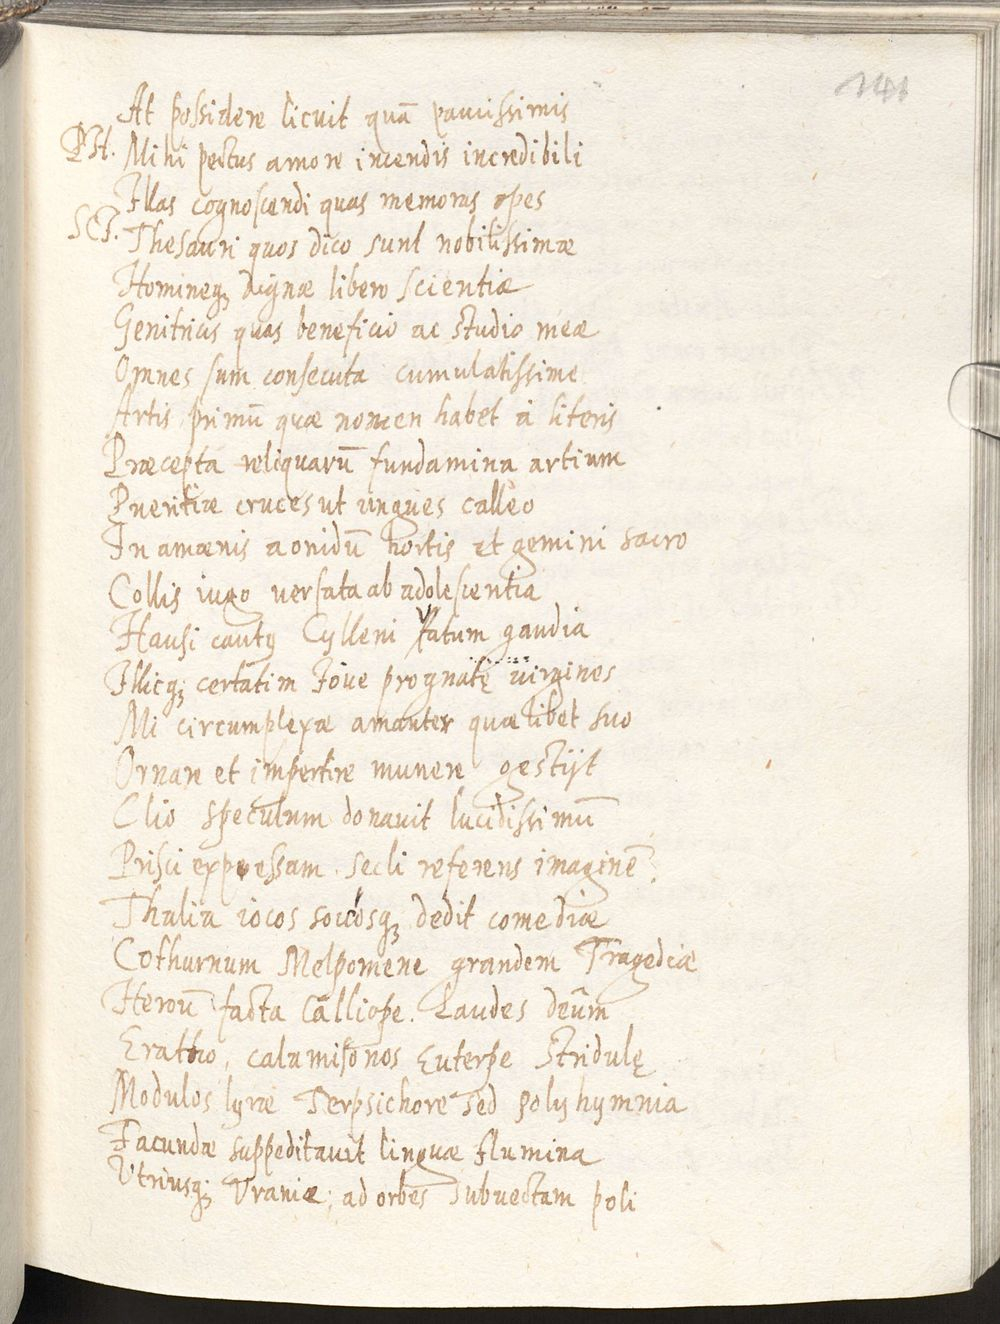 141
At possidere licuit quā paucissimis
PH. Mihi pectus amore incendis incredibili
Illas cognoscendi quas memoras opes
SCI. Thesauri quos dico sunt nobilissimæ
Homineq; dignæ libero scientiæ
Genitricis quas beneficio ac studio meæ
Omnes sum consecuta cumulatissime
Artis primū quæ nomen habet à literis
Præcepta reliquarū fundamina artium
Pueritiæ cruces ut ungues calleo
In amænis aonidū hortis et gemini sacro
Collis iugo versata ab adolescentia
Hausi cantų Cylleni Vatum gaudia
Illicq; certatim Ioue prognatę virgines
Mi circumplexæ amanter quælibet suo
Ornare et impertire munere gestijt
Clio speculum donauit lucidissimū
Prisci expressam secli referens imaginē
Thalia iocos soccosq; dedit comediæ
Cothurnum Melpomene grandem Tragediæ
Heroū facta Calliope. Laudes deûm
Eratho, calamisonos Euterpe Stridulę
Modulos lyræ Terpsichore sed polyhymnia
Facundæ suppeditauit linguæ flumina
Utriusq; Vraniæ; ad orbes subuectam poli